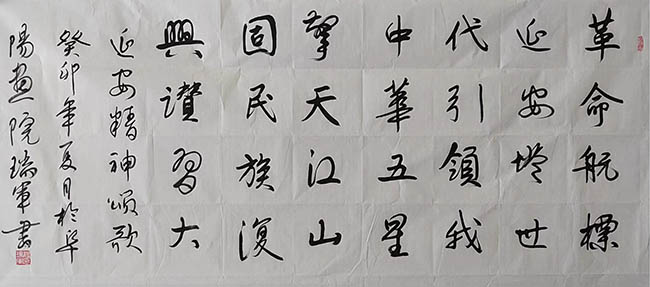 革命航標
延安塔世
代引領我
中華五星
擎天江山
固民族復
興讃習大
延安精神頌歌
癸卯年夏月於阜
陽畫院瑞軍書